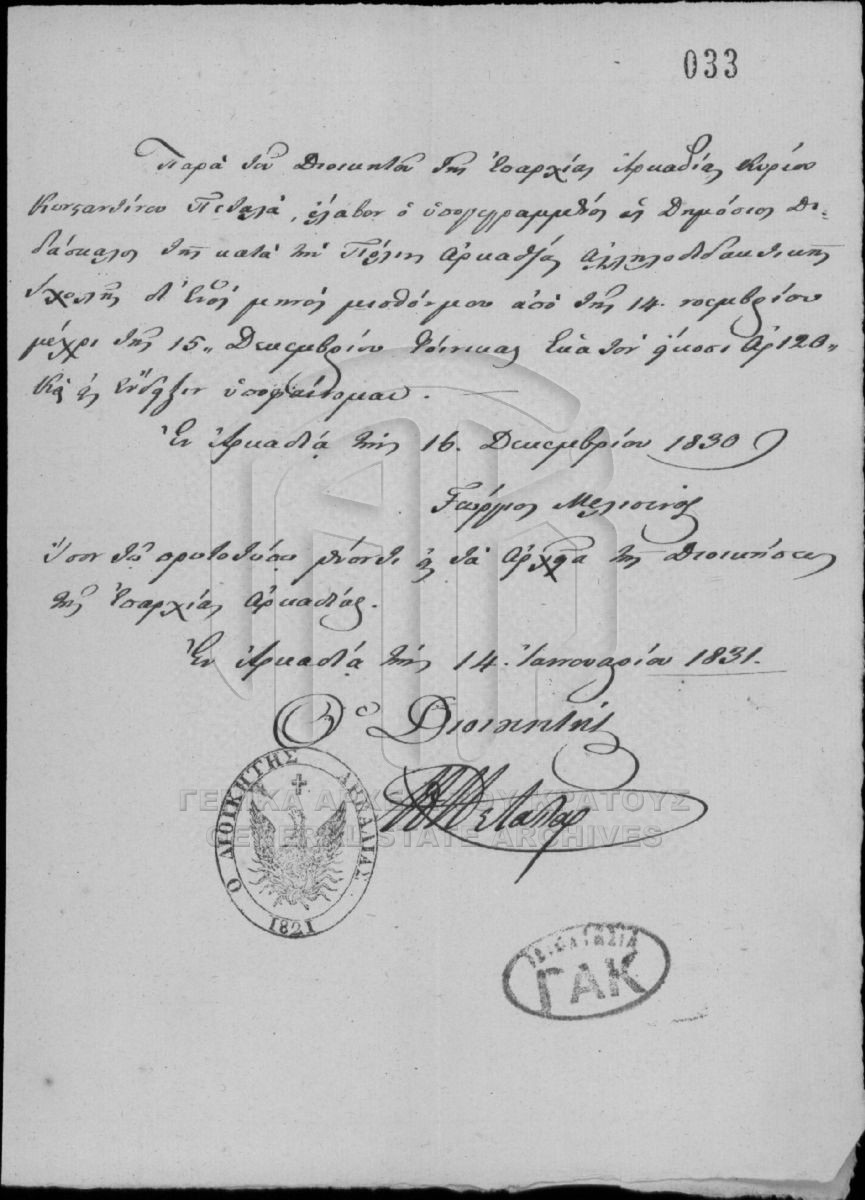 033
Παρὰ τοῦ Διοικητοῦ τῆς Ἐπαρχίας Ἀρκαδίας Κυρίου
Κωνσαντίνου Πεταλᾶ, ἔλαβον ὁ ὑπογεγραμμένος ὡς Δημόσιος Δι-
δάσκαλος τῆς κατὰ τὴν Πόλιν Ἀρκαδίας Ἀλληλοδιδακτικῆς
Σχολῆς δι' ἑνὸς μηνὸς μισθόν μου ἀπὸ τῆς 14. νοεμβρίου
μέχρι τῆς 15" Δεκεμβρίου Φοίνικας Ἑκατὸν εἴκοσι Ἀρ 120"
Καὶ εἰς ἔνδειξιν ὑποφαίνομαι.
Ἐν Ἀρκαδίᾳ τὴν 16. Δεκεμβρίου 1830
Γεώργιος Μελισινὸς
Ἴσον τῷ πρωτοτύπῳ μένοντι εἰς τὰ Ἀρχεῖα τῆς Διοικήσεως
τῆς Ἐπαρχίας Ἀρκαδίας.
Ἐν Ἀρκαδίᾳ τὴν 14. Ἰαννουαρίου 1831.
Ὁ Διοικητὴς
Κ Πεταλας
Ο ΔΙΟΙΚΗΤΗΣ ΑΡΚΑΔΙΑΣ
1821
ΓΕΝΙΚΑ ΑΡΧΕΙΑ ΤΟΥ ΚΡΑΤΟΥΣ
GENERAL STATE ARCHIVES
ΓΑΚ